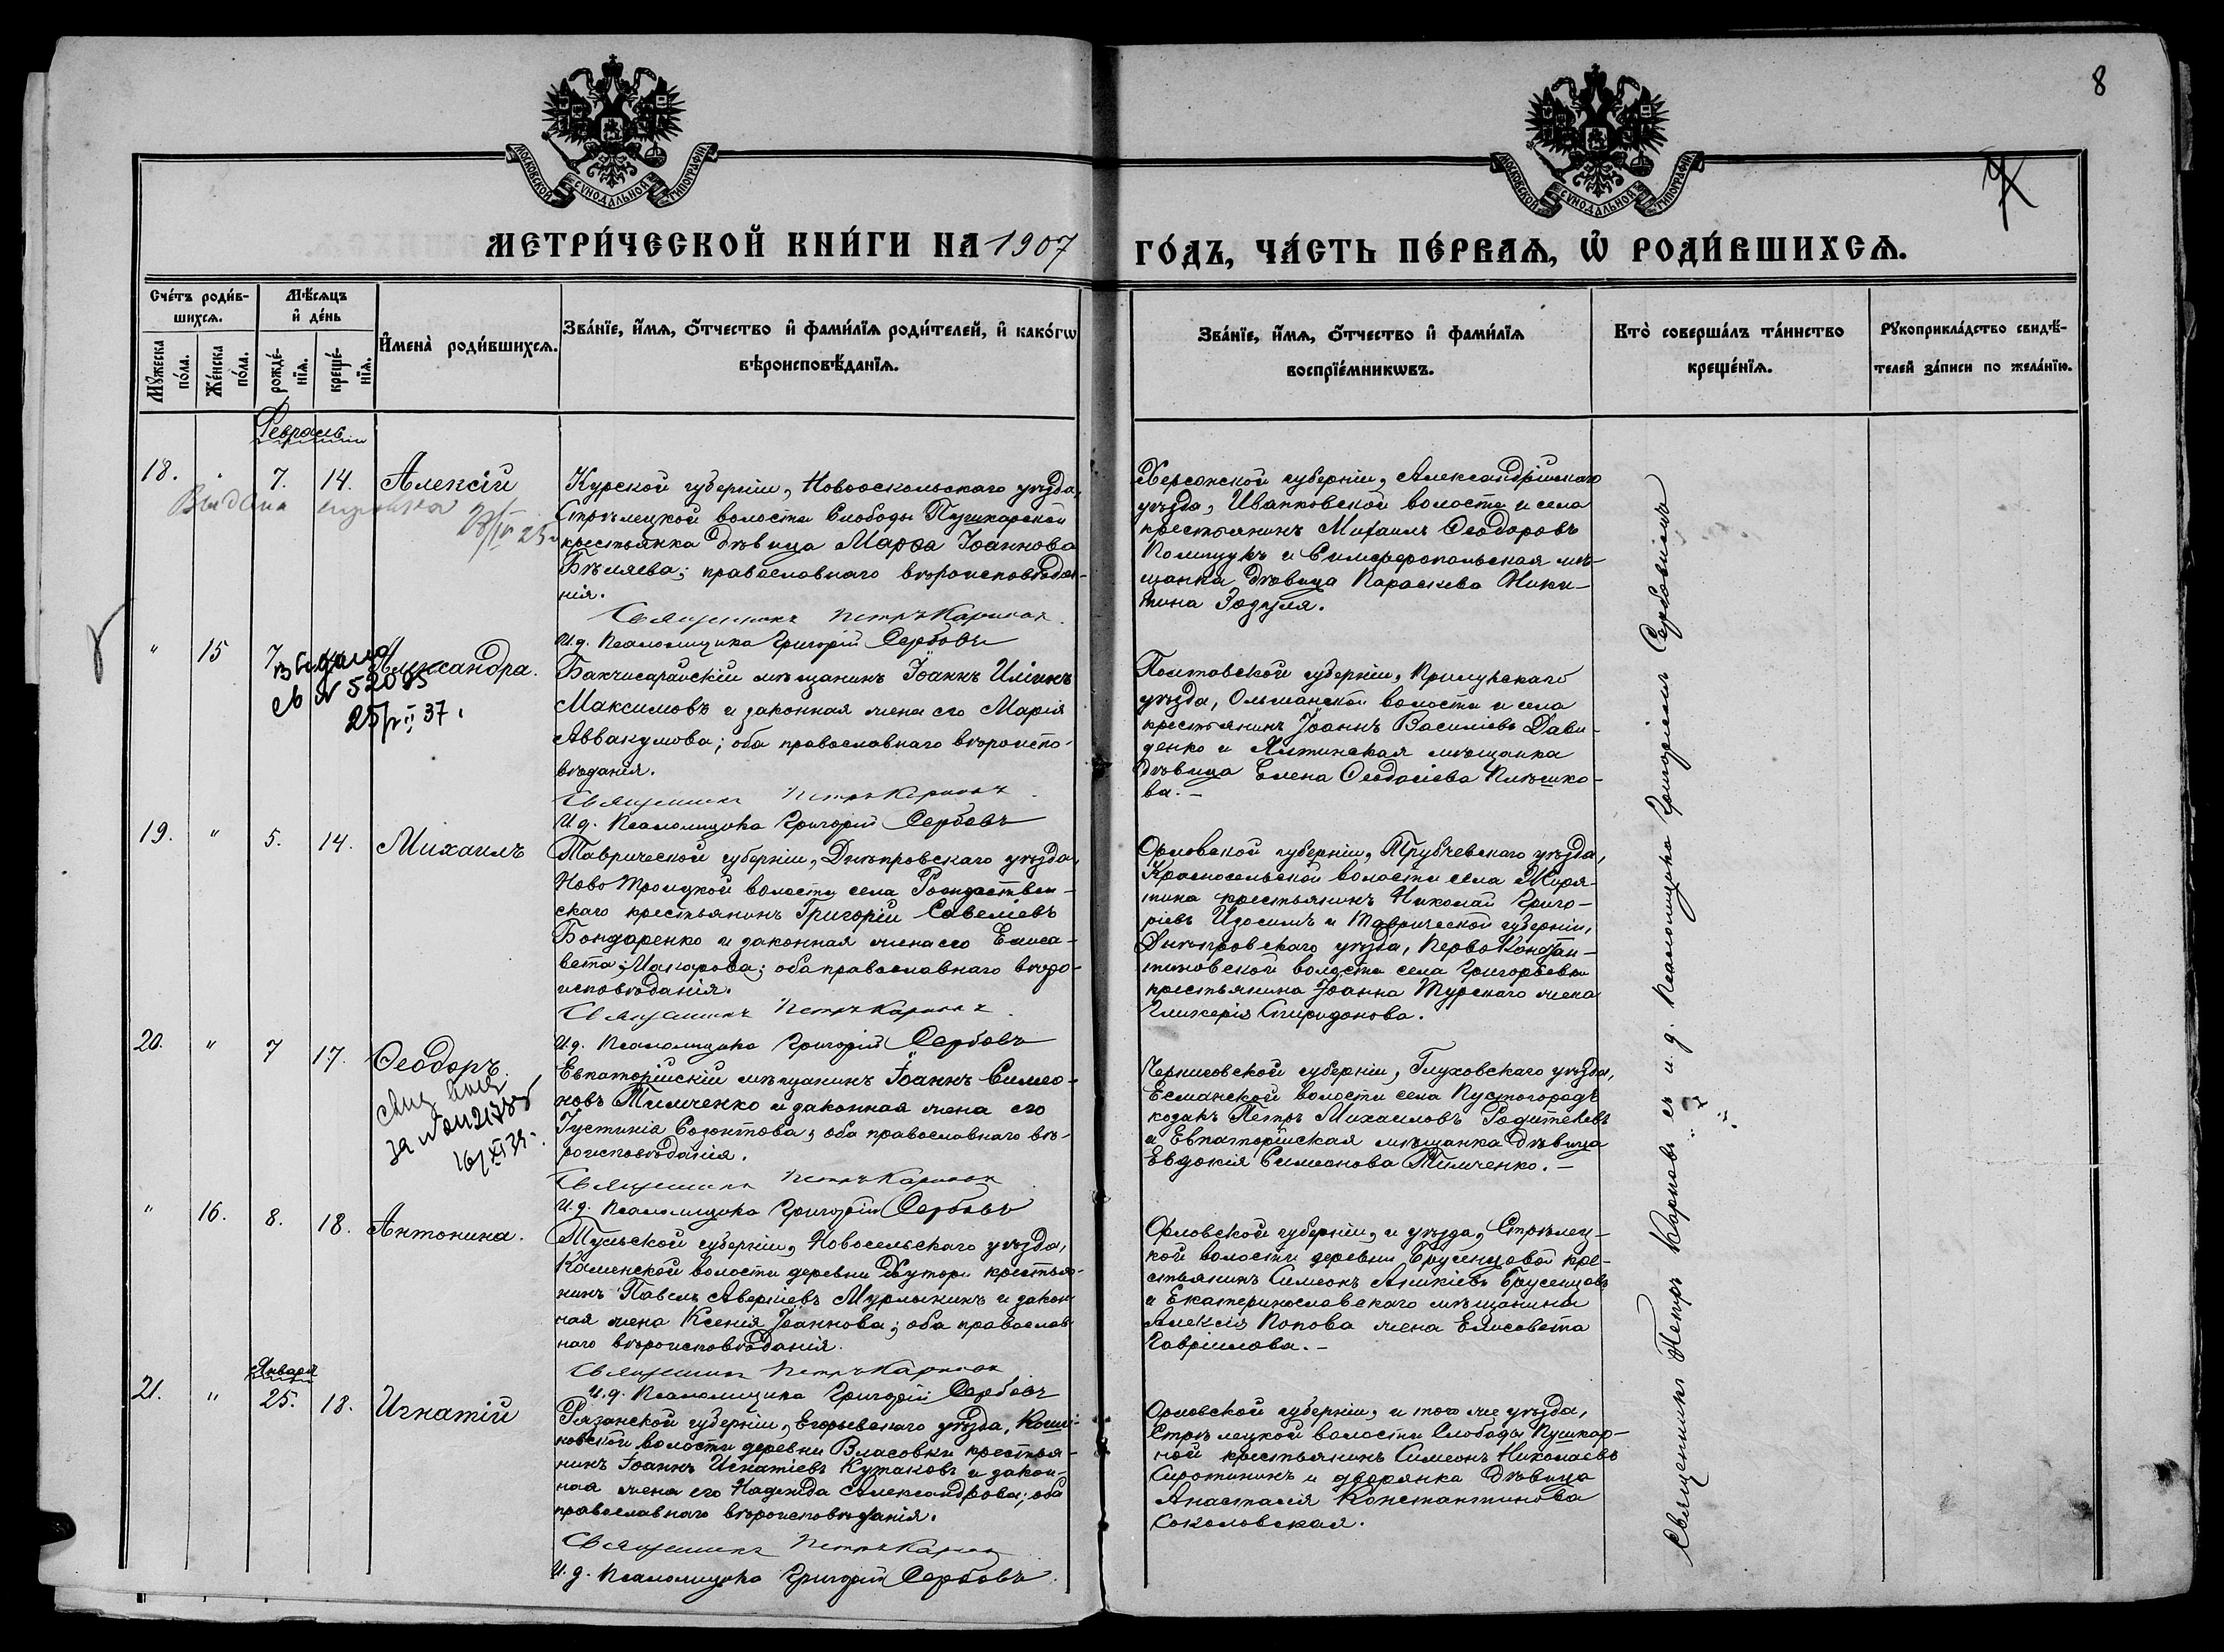 8
МОСКОВСКОЙ СѴНОДАЛЬНОЙ ТИПОГРАФІИ
МОСКОВСКОЙ СѴНОДАЛЬНОЙ ТИПОГРАФІИ
МЕТРИ́ЧЕСКОЙ КНИ́ГИ НА 1907
ГО́ДЪ, ЧА́СТЬ ПЕ́РВАѦ, Ѡ҆ РОДИ́ВШИХСѦ.
Сче́тъ роди́в-
шихсѧ.
Мꙋ́жеска по́ла.
Же́нска по́ла.
Мѣ́сѧцъ
и҆ де́нь
рожде́-
нїѧ.
креще́-
нїѧ.
И҆мена̀ роди́вшихсѧ.
Зва́нїе, и҆́мѧ, ѻ҆́тчество и҆ фами́лїѧ роди́телей, и҆ како́гѡ
вѣроисповѣ́данїѧ.
Зва́нїе, и҆́мѧ, ѻ҆́тчество и҆ фами́лїѧ
воспрїе́мникѡвъ.
Кто̀ соверша́лъ та́инство
креще́нїѧ.
Рꙋкоприкла́дство свидѣ́-
телей за́писи по жела́нїю.
Февраль
18. 7. 14. Алексій
Выдана справка
Курской губерніи, Новооскольскаго уѣзда,
Стрѣлецкой волости Слободы Пушкарской
крестьянка дѣвица Марѳа Іоаннова
Бѣляева; православнаго вѣроисповѣда-
нія.
Священникъ Петръ Карпов
И.д. Псаломщика Григорій Сербовъ
Херсонской губерніи, Александрійскаго
уѣзда, Ивановской волости и села
крестьянинъ Михаилъ Ѳеодоровъ
Полищукъ и Симферопольская мѣ-
щанка дѣвица Параскева Ники-
тина Зозуля.
" 15 7 Александра.
выдана
св № 52085
25/II 37.
Бахчисарайскій мѣщанинъ Іоаннъ Иліинъ
Максимовъ и законная жена его Марія
Аввакумова; оба православнаго вѣроиспо-
вѣданія.
Священникъ Петръ Карпов
И.д. Псаломщика Григорій Сербовъ
Полтавской губерніи, Прилукскаго
уѣзда, Ольшанской волости и села
крестьянинъ Іоаннъ Василіевъ Дави-
денко и Ялтинская мѣщанка
дѣвица Елена Ѳеодосіева Плѣшко-
ва.-
19. " 5. 14. Михаилъ
Таврической губерніи, Днѣпровскаго уѣзда,
Ново Троицкой волости села Рождествен-
скаго крестьянинъ Григорій Савеліевъ
Бондаренко и законная жена его Елиса-
вета Макарова; оба православнаго вѣро-
исповѣданія.
Священникъ Петръ Карпов
И.д. Псаломщика Григорій Сербовъ
Орловской губерніи, Трубчевскаго уѣзда,
Красносельской волости села Жиря-
тина крестьянинъ Николай Григо-
ріевъ Изосимъ и Таврической губерніи,
Днѣпровскаго уѣзда, Перво Констан-
тиновской волости села Григорьевки
крестьянина Іоанна Турскаго жена
Гликерія Спиридонова.
20. " 7 17. Ѳеодоръ.
Евпаторійскій мѣщанинъ Іоаннъ Симео-
новъ Тимченко и законная жена его
Іустинія Созонтова; оба православнаго вѣ-
роисповѣданія.
Священникъ Петръ Карпов
И.д. Псаломщика Григорій Сербовъ
Черниговской губерніи, Глуховскаго уѣзда,
Есманской волости села Пустогородъ
козакъ Петръ Михаиловъ Родителевъ
и Евпаторійская мѣщанка дѣвица
Евдокія Симеонова Тимченко.-
" 16. 8. 18. Антонина.
Тульской губерніи, Новосельскаго уѣзда,
Каменской волости деревни Хутори крестья-
нинъ Павелъ Аверкіевъ Мурлыкинъ и закон-
ная жена Ксенія Іоаннова; оба православ-
наго вѣроисповѣданія.
Священникъ Петръ Карпов
И.д. Псаломщика Григорій Сербовъ
Орловской губерніи, и уѣзда, Стрѣлец-
кой волости деревни Брусенцовой кре-
стьянинъ Симеонъ Аникіевъ Брусенцовъ
и Екатеринославскаго мѣщанина
Алексія Попова жена Елисавета
Гавріилова.-
Января
21. " 25. 18. Игнатій
Рязанской губерніи, Егорьевскаго уѣзда,
новской волости деревни Власовки крестья-
нинъ Іоаннъ Игнатіевъ Кутаковъ и закон-
ная жена его Надежда Александрова; оба
православнаго вѣроисповѣданія.
Священникъ Петръ Карпов
И.д. Псаломщика Григорій Сербовъ
Орловской губерніи, и того же уѣзда,
Стрѣлецкой волости Слободы Пушкар-
ной крестьянинъ Симеонъ Николаевъ
Сиротининъ и дворянка дѣвица
Анастасія Константинова
Соколовская.
Священникъ Петръ Карповъ съ и.д. Псаломщика Григоріемъ Сербовымъ